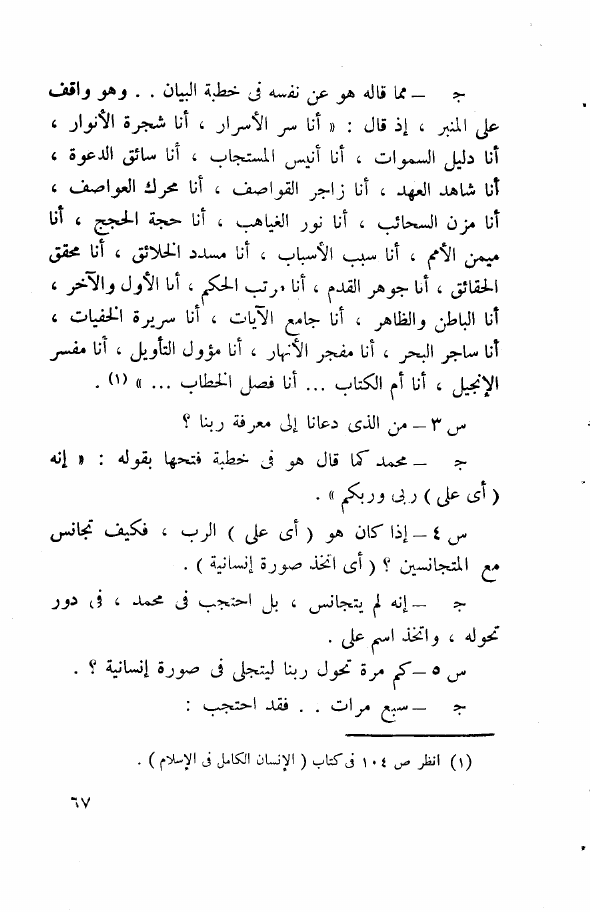 ج — مما قاله هو عن نفسه فى خطبة البيان . . وهو واقف
على المنبر ، إذ قال : « أنا سر الأسرار ، أنا شجرة الأنوار ،
أنا دليل السموات ، أنا أنيس المستجاب ، أنا سائق الدعوة ،
أنا شاهد العهد ، أنا زاجر القواصف ، أنا محرك العواصف ،
أنا مزن السحائب ، أنا نور الغياهب ، أنا حجة الحجج ، أنا
ميمن الأمم ، أنا سبب الأسباب ، أنا مسدد الخلائق ، أنا محقق
الحقائق ، أنا جوهر القدم ، أنا مرتب الحكم ، أنا الأول والآخر ،
أنا الباطن والظاهر ، أنا جامع الآيات ، أنا سريرة الخفيات ،
أنا ساجر البحر ، أنا مفجر الأنهار ، أنا مؤول التأويل ، أنا مفسر
الإنجيل ، أنا أم الكتاب ... أنا فصل الخطاب ... » (١) .
س ٣ — من الذى دعانا إلى معرفة ربنا ؟
ج — محمد كما قال هو فى خطبة فتحها بقوله : « إنه
( أى على ) ربى وربكم » .
س ٤ — إذا كان هو ( أى على ) الرب ، فكيف تجانس
مع المتجانسين ؟ ( أى اتخذ صورة إنسانية ) .
ج — إنه لم يتجانس ، بل احتجب فى محمد ، فى دور
تحوله ، واتخذ اسم على .
س ٥ — كم مرة تحول ربنا ليتجلى فى صورة إنسانية ؟ .
ج — سبع مرات . . فقد احتجب :
(١) انظر ص ١٠٤ فى كتاب ( الإنسان الكامل فى الإسلام ) .
٦٧